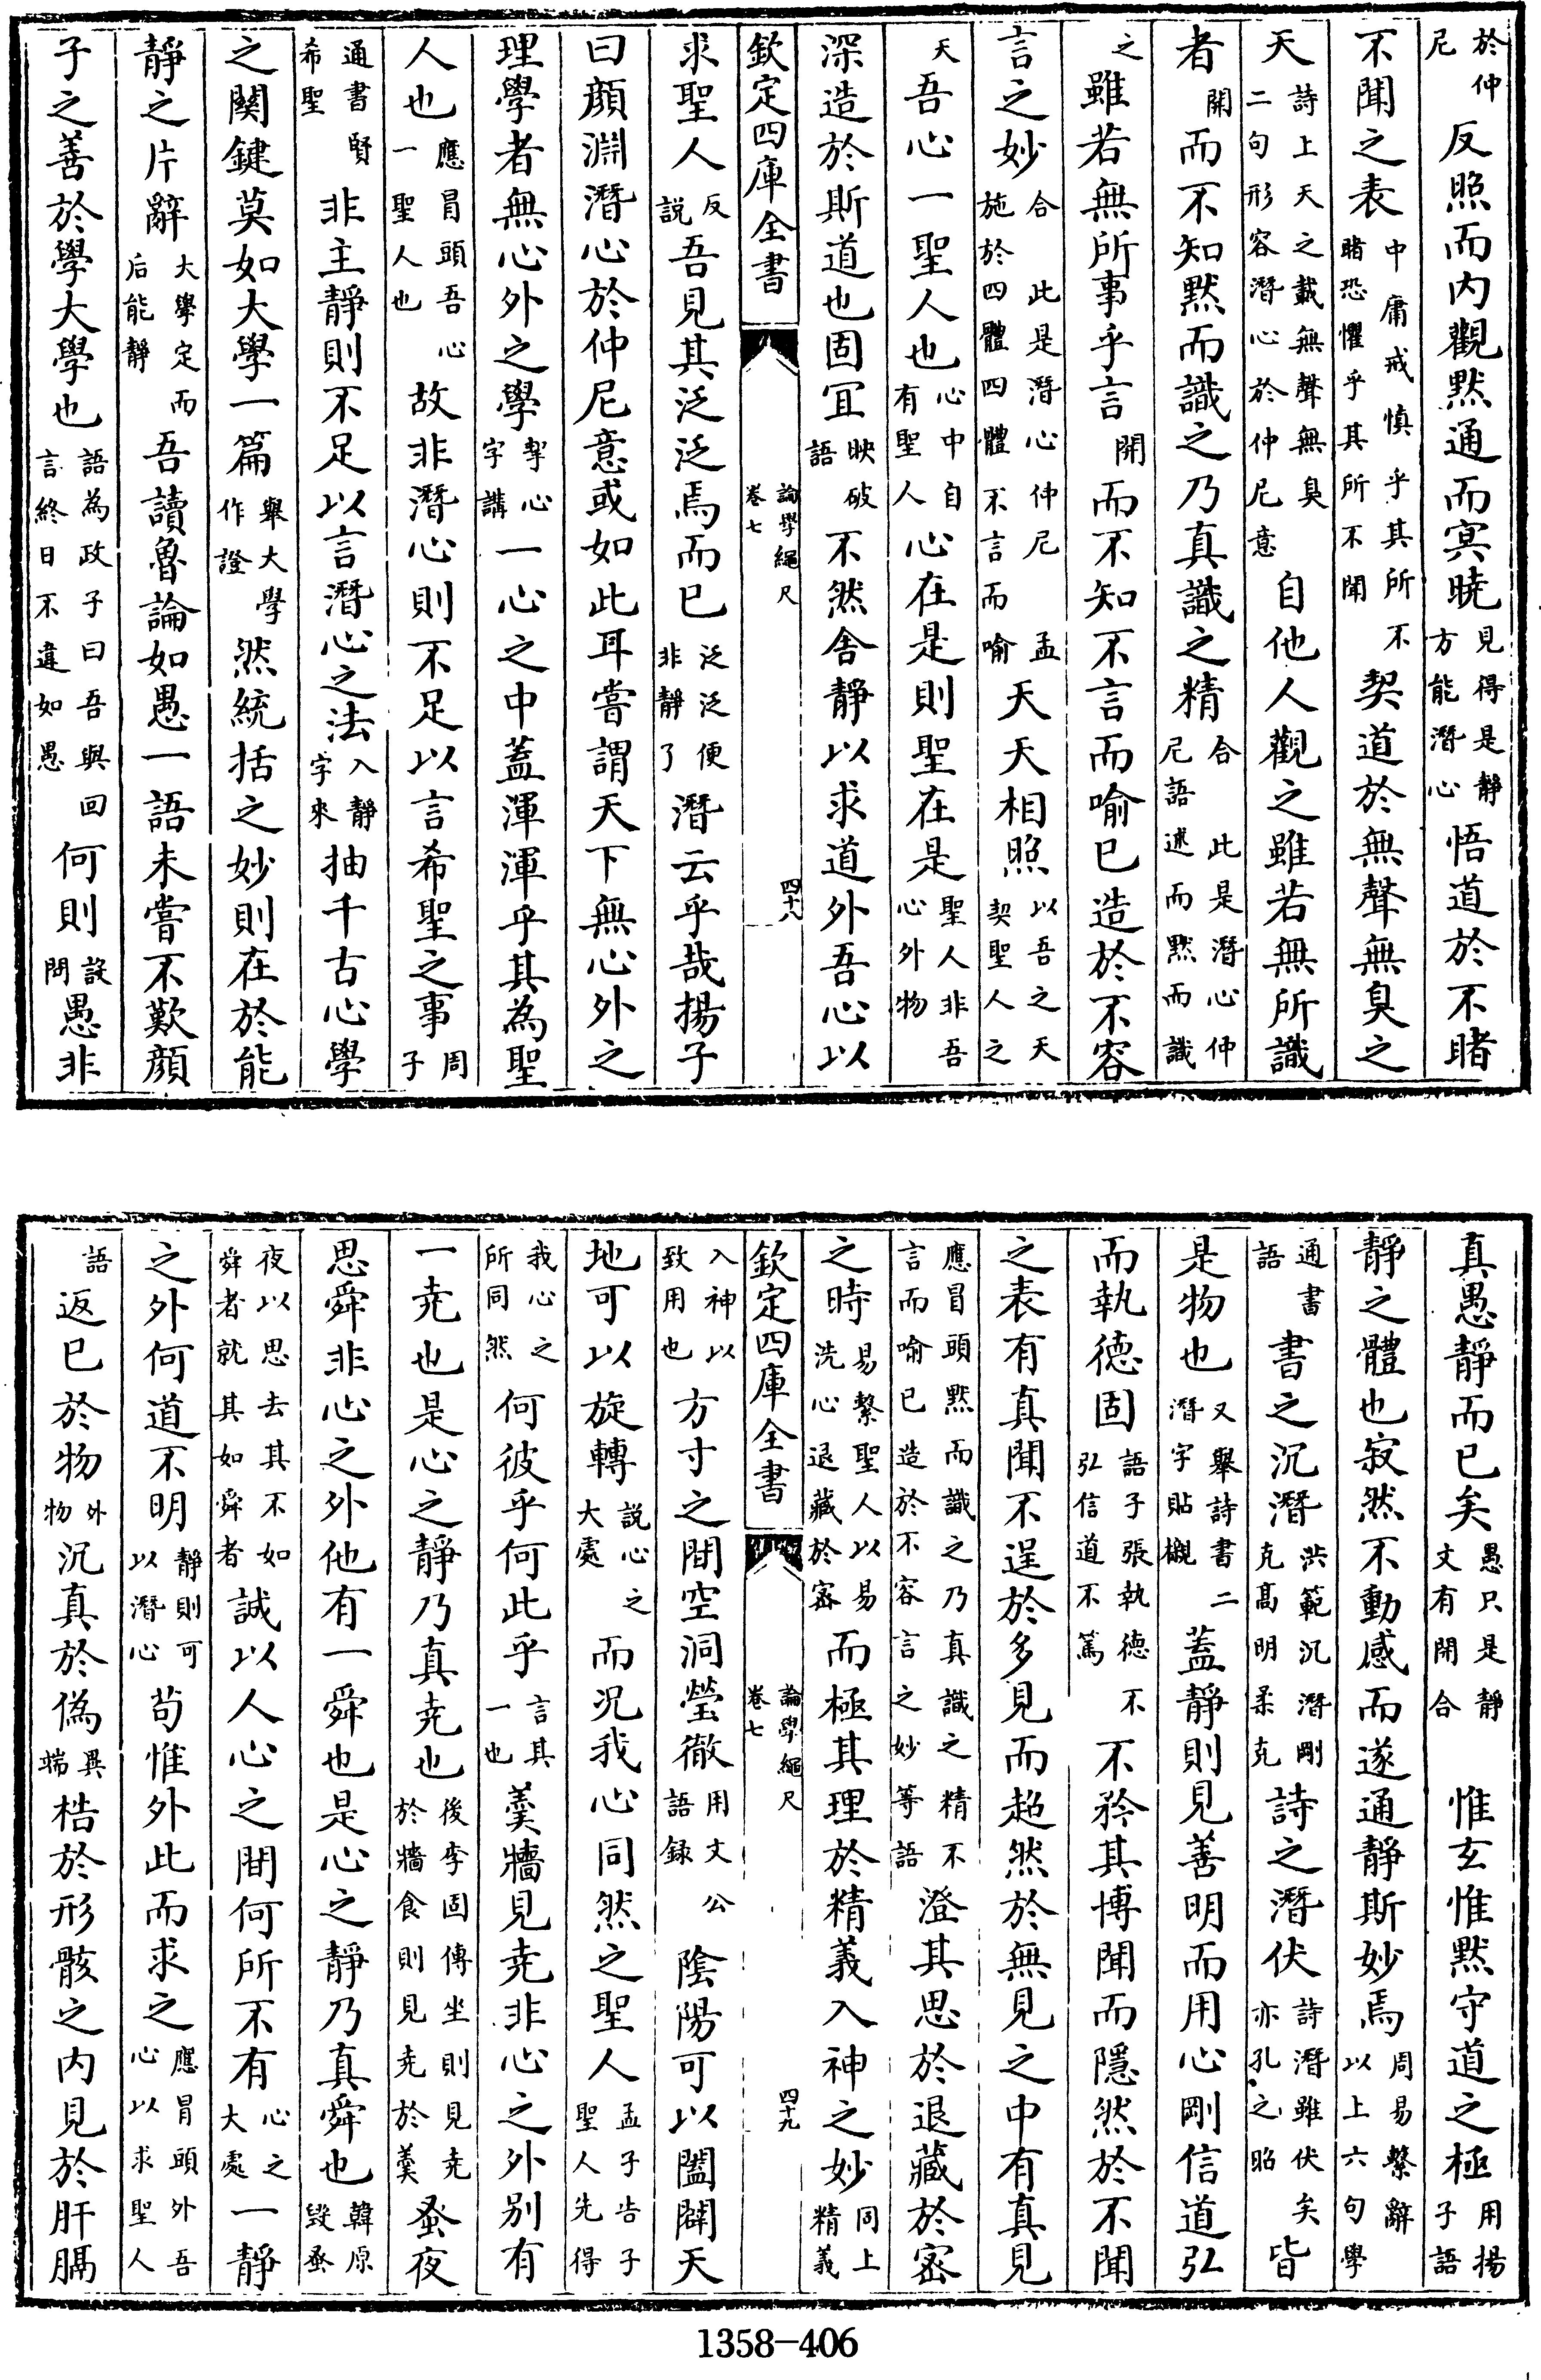 於仲尼反照而内觀默通而冥曉見得是静方能潛心悟道於不睹
不聞之表中庸戒慎乎其所不睹恐懼乎其所不聞契道於無聲無臭之
天詩上天之載無聲無臭二句形容潛心於仲尼意自他人觀之雖若無所識
者開而不知默而識之乃真識之精合此是潛心仲尼語述而默而識
之雖若無所事乎言開而不知不言而喻已造於不容
言之妙合此是潛心仲尼孟施於四體四體不言而喻天天相照以吾之天契聖人之
天吾心一聖人也心中自有聖人心在是則聖在是聖人非吾心外物
深造於斯道也固宜映破語不然舍静以求道外吾心以
欽定四庫全書 論學繩尺卷七 四十八
求聖人反説吾見其泛泛焉而已泛泛便非静了潛云乎哉揚子
曰顔淵潛心於仲尼意或如此耳嘗謂天下無心外之
理學者無心外之學挈心字講一心之中蓋渾渾乎其為聖
人也應冒頭吾心一聖人也故非潛心則不足以言希聖之事周子
通書賢希聖非主静則不足以言潛心之法入静字來抽千古心學
之關鍵莫如大學一篇舉大學作證然統括之妙則在於能
静之片辭大學定而后能静吾讀魯論如愚一語未嘗不歎顔
子之善於學大學也語為政子曰吾與回言終日不違如愚何則設問愚非
真愚静而已矣愚只是静文有開合惟玄惟默守道之極用揚子語
静之體也寂然不動感而遂通静斯妙焉周易繫辭以上六句學
通書語書之沉潛洪範沉潛剛克髙明柔克詩之潛伏詩潛雖伏矣亦孔之昭皆
是物也又舉詩書二潛字貼襯蓋静則見善明而用心剛信道弘
而執德固語子張執德不弘信道不篤不矜其博聞而隱然於不聞
之表有真聞不逞於多見而超然於無見之中有真見
應冒頭默而識之乃真識之精不言而喻已造於不容言之妙等語澄其思於退藏於宻
之時易繫聖人以易洗心退藏於宻而極其理於精義入神之妙同上精義
欽定四庫全書 論學繩尺卷七 四十九
入神以致用也方寸之間空洞瑩徹用文公語録陰陽可以闔闢天
地可以旋轉說心之大處而况我心同然之聖人孟子告子聖人先得
我心之所同然何彼乎何此乎言其一也羹牆見堯非心之外别有
一堯也是心之静乃真堯也後李固傳坐則見堯於牆食則見堯於羹蚤夜
思舜非心之外他有一舜也是心之静乃真舜也韓原毁蚤
夜以思去其不如舜者就其如舜者誠以人心之間何所不有心之大處一静
之外何道不明静則可以潛心苟惟外此而求之應冒頭外吾心以求聖人
語返已於物外物沉真於偽異端梏於形骸之内見於肝膈
1358-406